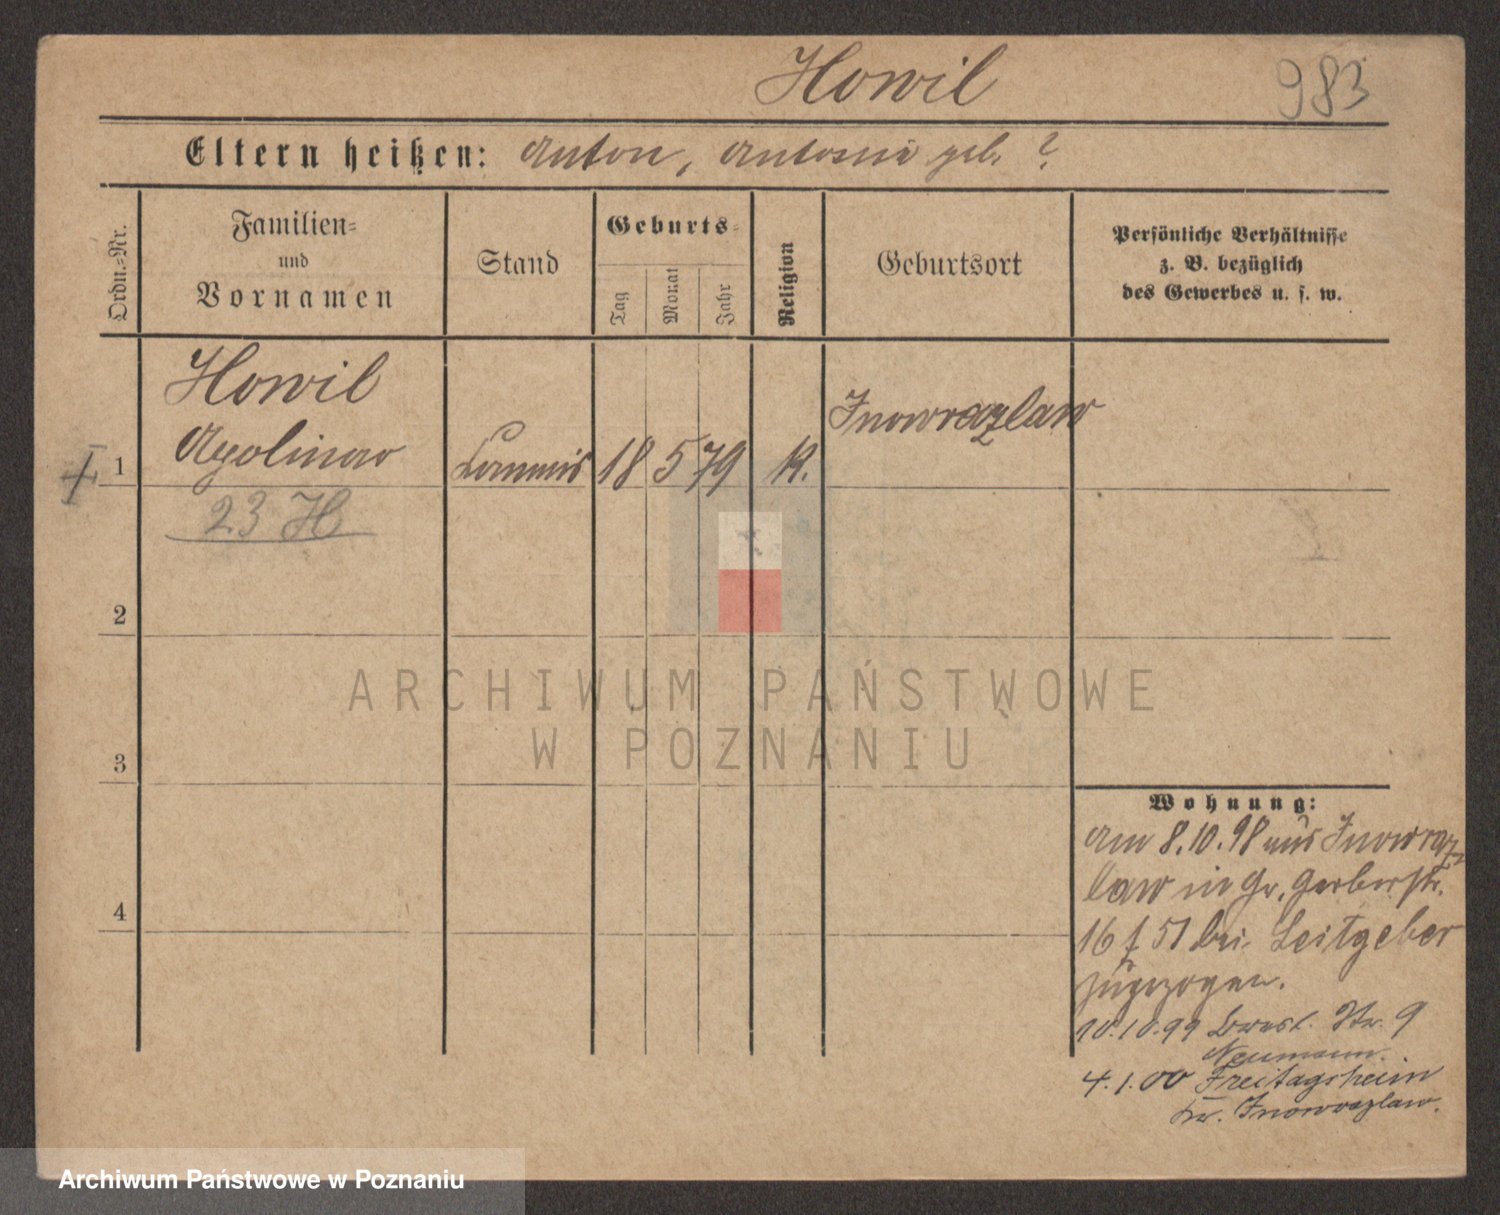 Howil
983
Eltern heißen: Anton, Antonie geb. ?
Ordn.-Nr.
Familien-
und
Vornamen
Stand
Geburts-
Tag
Monat
Jahr
Religion
Geburtsort
Persönliche Verhältnisse
z. B. bezüglich
des Gewerbes u. s. w.
Howil
Apolinar
1
Commis
18
5
79
K.
Inowrazlaw
23 H
2
ARCHIWUM PAŃSTWOWE
W POZNANIU
3
Wohnung:
am 8.10.98 aus Inowraz-
law in Gr. Gerberstr.
4
16 f 51 bei Leitgeber
zugezogen.
10.10.99 Bresl. Str. 9
Neumann.
4.1.00 Freitagsheim
Kr. Inowrazlaw.
Archiwum Państwowe w Poznaniu